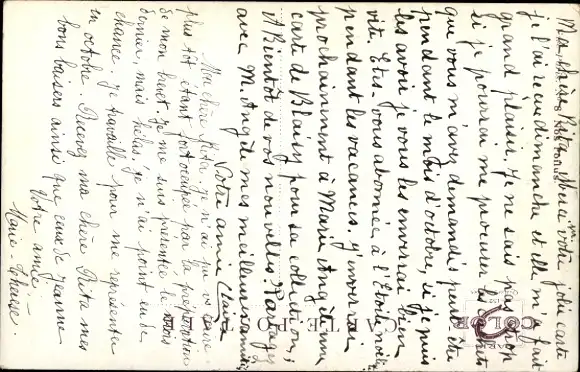 Ma chère Rita, merci votre jolie carte
je l'ai reçue dimanche et elle m'a fait
grand plaisir. Je ne sais pas trop
si je pourrai me procurer les
que vous m'avez demandés peut être
pendant le mois d'octobre, si je puis
les avoir je vous les enverrai bien
vite. Etes-vous abonnée à l'Etoile noëliste
pendant les vacances. J'enverrai
prochainement à Marie Angèle une
carte de Blaisy pour sa collection;
A Bientôt de vos nouvelles. Partagez
avec M. Angèle mes meilleurs amitiés
Votre amie Claire
Ma chère Rita, je n'ai pu vs écrire
plus tôt étant fort occupée par la préparation
de mon brevet. Je me suis présentée le mois
dernier, mais hélas! je n'ai point eu de
chance. Je travaille pour me représenter
en octobre. Recevez ma chère Rita mes
bons baisers ainsi que ceux de Jeanne
Votre amie
Marie Thérèse.
CARTE POSTALE
COLOR